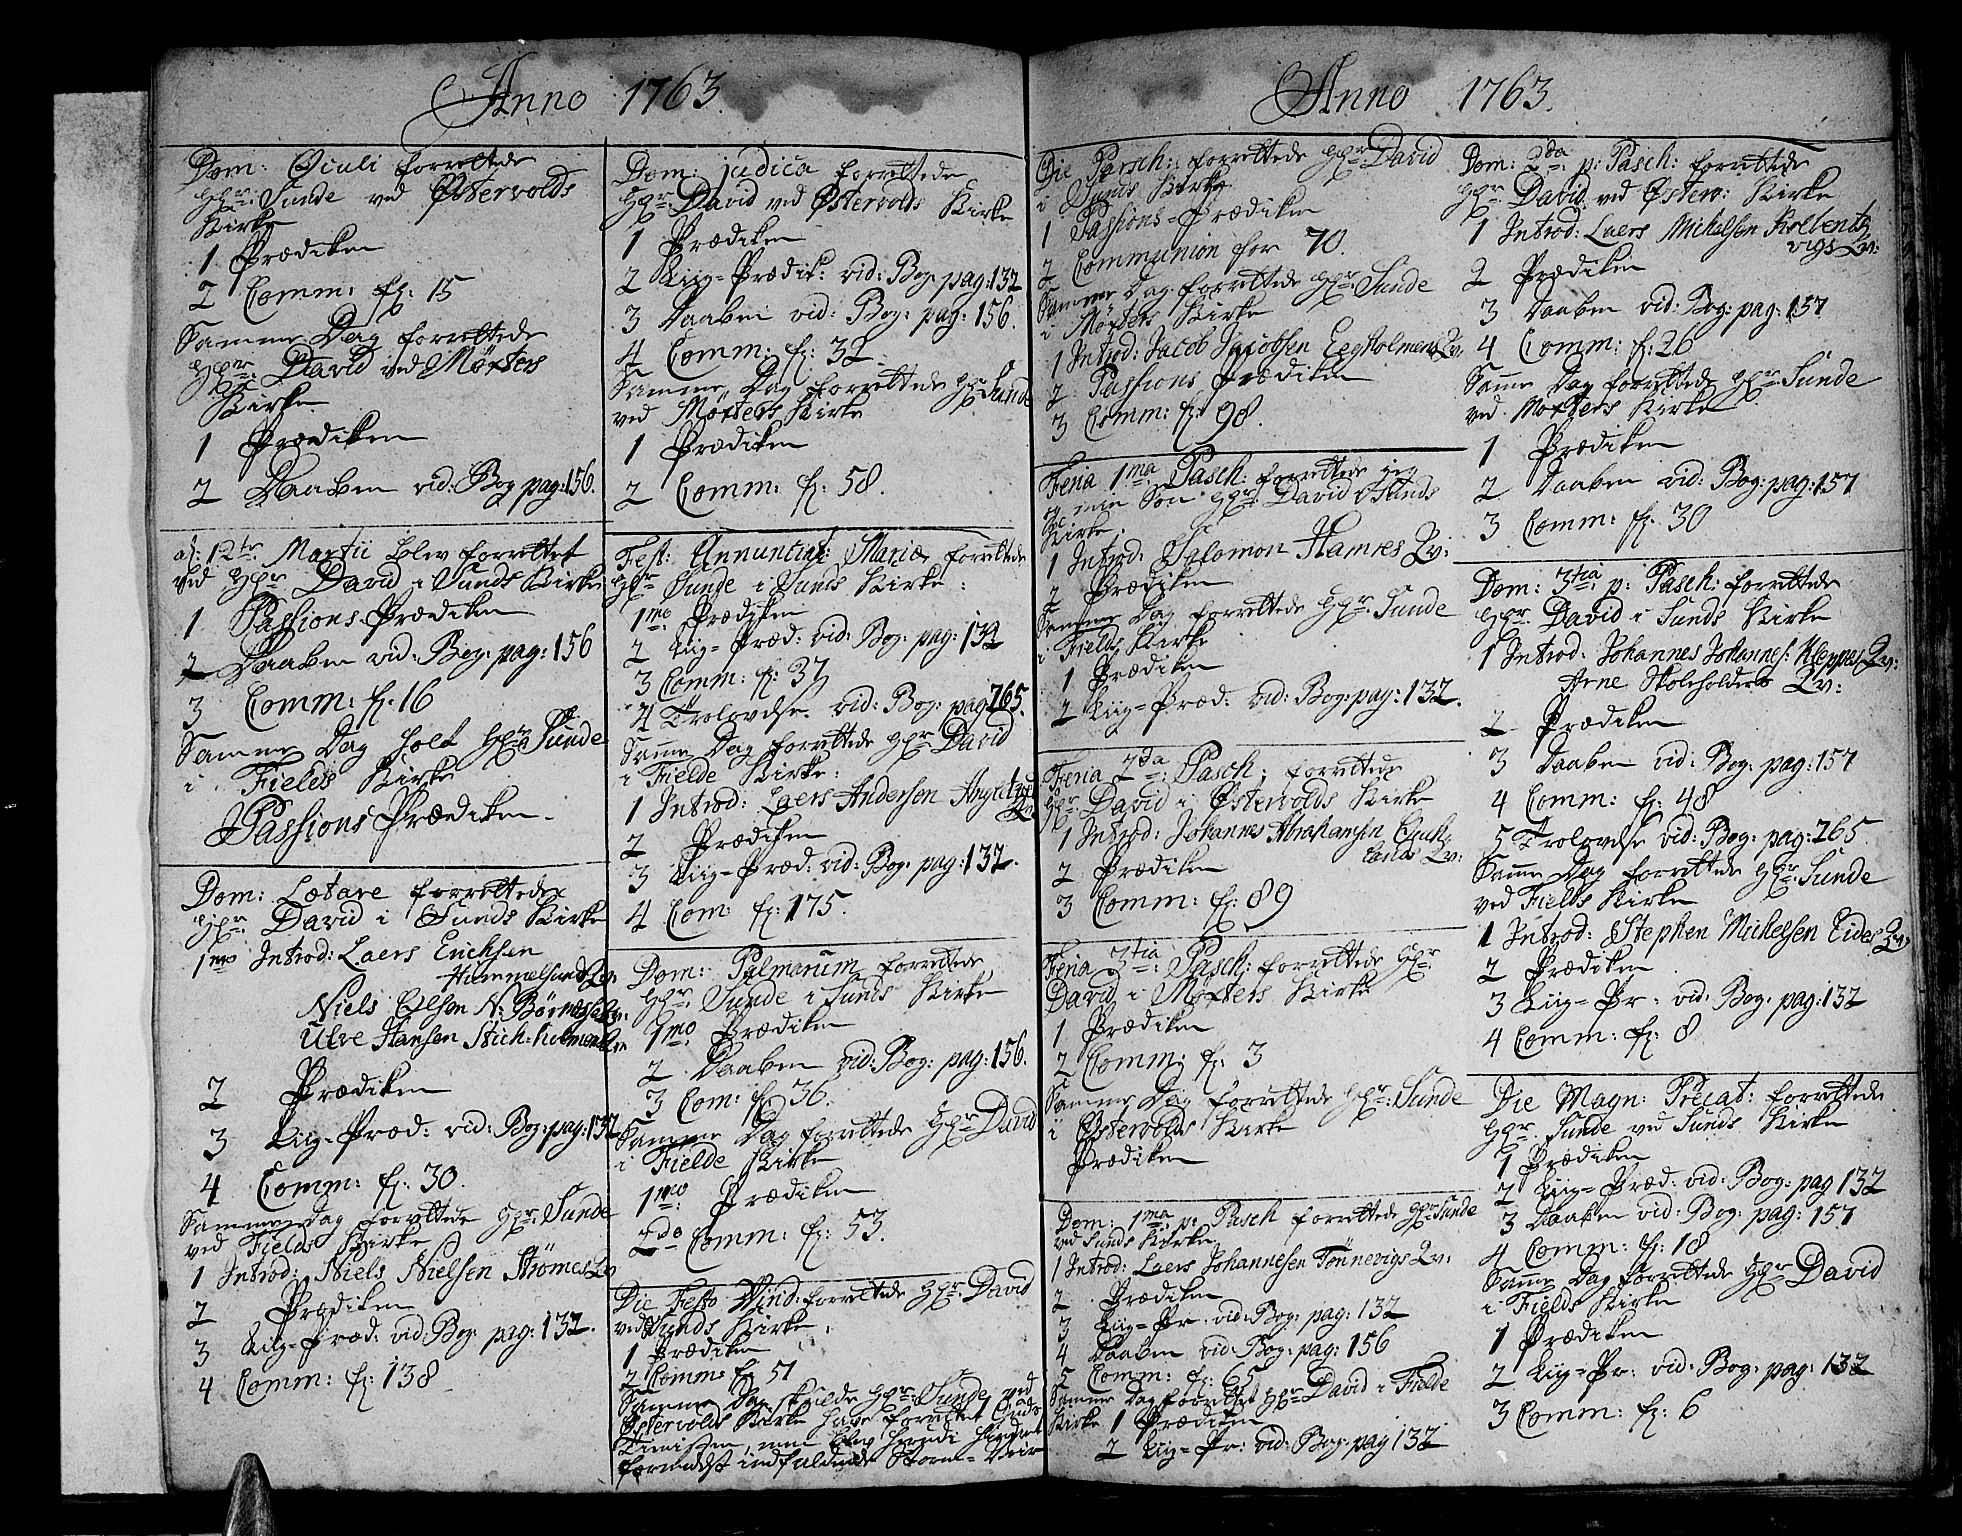 Anno 1763
Dom: Oculi forrettede
HHr: Sunde ved Østervolds
Kirke
1 Prædiken
2 Comm: f: 15
Samme Dag forrettede
HHr: David ved Møxters
Kirke
1 Prædiken
2 Daaben vid: Bog pag: 156.
d: 12te Martii blev forrettet
ved HHr David i Sunds Kirke
1 Passions Prædiken
2 Daaben vid: Bog: pag: 156
3 Comm: f: 16
Samme Dag holt HHr: Sunde
i Fields Kirke
Passions Prædiken.
Dom: Lætare forrettede
HHr David i Sunds Kirke
1mo Introd: Laers Erichsen
Hummelsund Qv:
Niels Olsen N: Børnes Qv:
Ulve Hansen Stich-holmen Qv:
2 Prædiken
3 Liig-Præd: vid: Bog: pag: 132
4 Comm: f: 30.
Samme Dag forrettede HHr: Sunde
ved Fields Kirke
1 Introd: Niels Nielsen Strømes Qv
2 Prædiken
3 Liig-Præd: vid: Bog: pag: 132.
4 Comm: f: 138
Dom: judica forrettede
HHr: David ved Østervolds Kirke
1 Prædiken
2 Liig-Prædik: vid: Bog: pag: 132
3 Daaben vid: Bog: pag: 156.
4 Comm: f: 32
Samme Dag forrettede HHr: Sunde
ved Møxters Kirke
1 Prædiken
2 Comm: f: 58.
Fest: Annuntiat: Mariæ forrettede
HHr Sunde i Sunds Kirke:
1mo: Prædiken
2 Liig-Præd: vid: Bog: pag: 132
3 Comm: f: 37
4 Trolovelse. vid: Bog: pag: 265.
Samme Dag forrettede HHr David
i Fielde Kirke:
1 Introd: Laers Andersen
Qv:
2 Prædiken
3 Liig-Præd: vid: Bog: pag: 132.
4 Com: f: 175.
Dom: Palmarum forrettede
HHr: Sunde i Sunds Kirke
1mo: Prædiken
2 Daaben vid: Bog: pag: 156.
3 Com: f: 36.
Samme Dag forrettede HHr David
i Fielde Kirke
1mo: Prædiken
2do Comm: f: 53.
Die Festo Virid: forrettede HHr: David
ved Sunds Kirke.
1 Prædiken
2 Comm: f: 51
Samme Dag skulde HHr: Sunde ved
Østervolds Kirke have forrettet Guds
Tienisten, men blev herudi hindret
formedelst indfaldende Storm-Veir
Anno 1763.
Die Parsch: forrettede HHr: David
i Sunds Kirke
1 Passions-Prædiken
2 Communion for 70.
Samme Dag forrettede HHr: Sunde
i Møxters Kirke
1 Introd: Jacob Jacobsen Eegholmens Qv:
2 Passions Prædiken
3 Comm: f: 98.
Feria 1ma Pasch: forrettede jeg
og min Søn HHr: David i Sunds
Kirke.
1 Introd: Salomon Hamres Qv:
2 Prædiken
Samme Dag forrettede HHr: Sunde
i Fields Kirke
1 Prædiken
2 Liig-Præd: vid: Bog: pag: 132.
Feria 2da: Pasch: forrettede
HHr: David i Østervolds Kirke
1 Introd: Johannes Abrahamsen
lands Qv:
2 Prædiken
3 Comm: f: 89
Feria 3tia: Pasch: forrettede HHr:
David i Møxters Kirke
1 Prædiken
2 Comm: f: 3
Samme Dag forrettede HHr: Sunde
i Østervolds Kirke
Prædiken
Dom: 1ma: p: Pasch forrettede HHr: Sunde
ved Sunds Kirke
1 Introd: Laers Johannesen Tønnevigs Qv:
2 Prædiken
3 Liig-Pr: vid: Bog: pag: 132
4 Daaben vid: Bog: pag: 156
5 Comm: f: 65
Samme Dag forrettet HHr: David i Fielde
Kirke 1 Prædiken
2 Liig-Pr: vid: Bog: pag 132
Dom: 2da p: Pasch: forrettede
HHr David ved Østerv: Kirke
1 Introd: Laers Mickelsen Kolbents
vigs Qv:
2 Prædiken
3 Daaben vid: Bog: pag: 157
4 Comm: f: 26
Samme Dag forrettede HHr: Sunde
ved Møxters Kirke
1 Prædiken
2 Daaben vid: Bog: pag: 157
3 Comm: f: 30
Dom: 3tia: p: Pasch: forrettede
HHr: David i Sunds Kirke
1 Introd: Johannes Johannes: Kleppes Qv:
Arne Skoleholders Qv:
2 Prædiken
3 Daaben vid: Bog: pag: 157
4 Comm: f: 48
5 Trolovelse vid: Bog: pag: 265.
Samme Dag forrettede HHr: Sunde
ved Fields Kirke
1 Introd: Stephen Mickelsen Eides Qv:
2 Prædiken
3 Liig-Pr: vid: Bog: pag: 132
4 Comm: f: 8
Die Magn: Precat: forrettede
HHr. Sunde ved Sunds Kirke
1 Prædiken
2 Liig-Præd: vid: Bog: pag 132
3 Daaben vid: Bog: pag: 157
4 Comm: f: 18
Samme Dag forrettede HHr David
i Fields Kirke
1 Prædiken
2 Liig-Pr: vid: Bog: pag: 132
3 Comm: f: 6